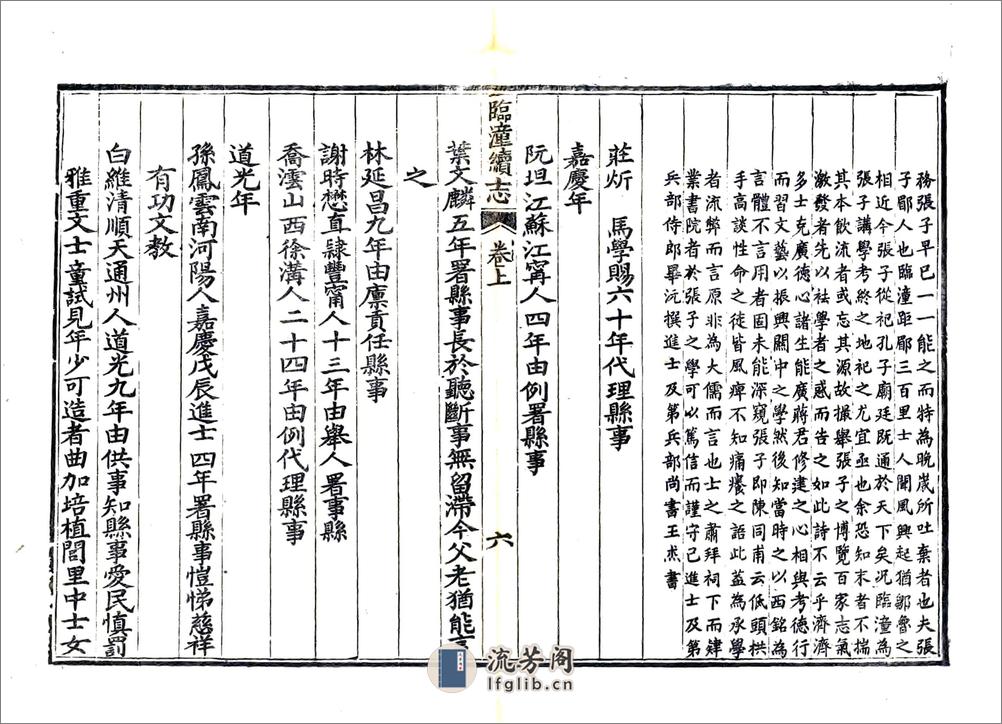 務張子早已一一能之而特為晚歲所吐棄者也夫張
子郿人也臨潼距郿三百里士人聞風興起猶鄒魯之
相近今張子從祀孔子廟廷既通於天下矣況臨潼為
張子講學考終之地祀之尤宜亟也余恐知末者不揣
其本飲流者或忘其源故撮舉張子之博覽百家志氣
激發者先以祛學者之惑而告之如此詩不云乎濟濟
多士克廣德心諸生能廣蔣君修建之心相與考德行
而習文藝以振興關中之學然後知當時之以西銘為
言體不言用者固未能深窺張子即陳同甫云低頭拱
手高談性命之徒皆風痺不知痛癢之語此蓋為承學
者流弊而言原非為大儒而言也士之肅拜祠下而肄
業書院者於張子之學可以篤信而謹守已進士及第
兵部侍郎畢沅撰進士及第兵部尚書王杰書
莊炘　馬學賜六十年代理縣事
嘉慶年
阮坦江蘇江寧人四年由例署縣事
臨潼續志　卷上　六
葉文麟五年署縣事長於聽斷事無留滯今父老猶能言
之
林延昌九年由廩貢任縣事
謝時懋直隸豐甯人十三年由舉人署事縣
喬澐山西徐溝人二十四年由例代理縣事
道光年
孫鳳雲南河陽人嘉慶戊辰進士四年署縣事愷悌慈祥
有功文教
白維清順天通州人道光九年由供事知縣事愛民慎罰
雅重文士童試見年少可造者曲加培植閭里中士女
流芳阁
lfglib.cn